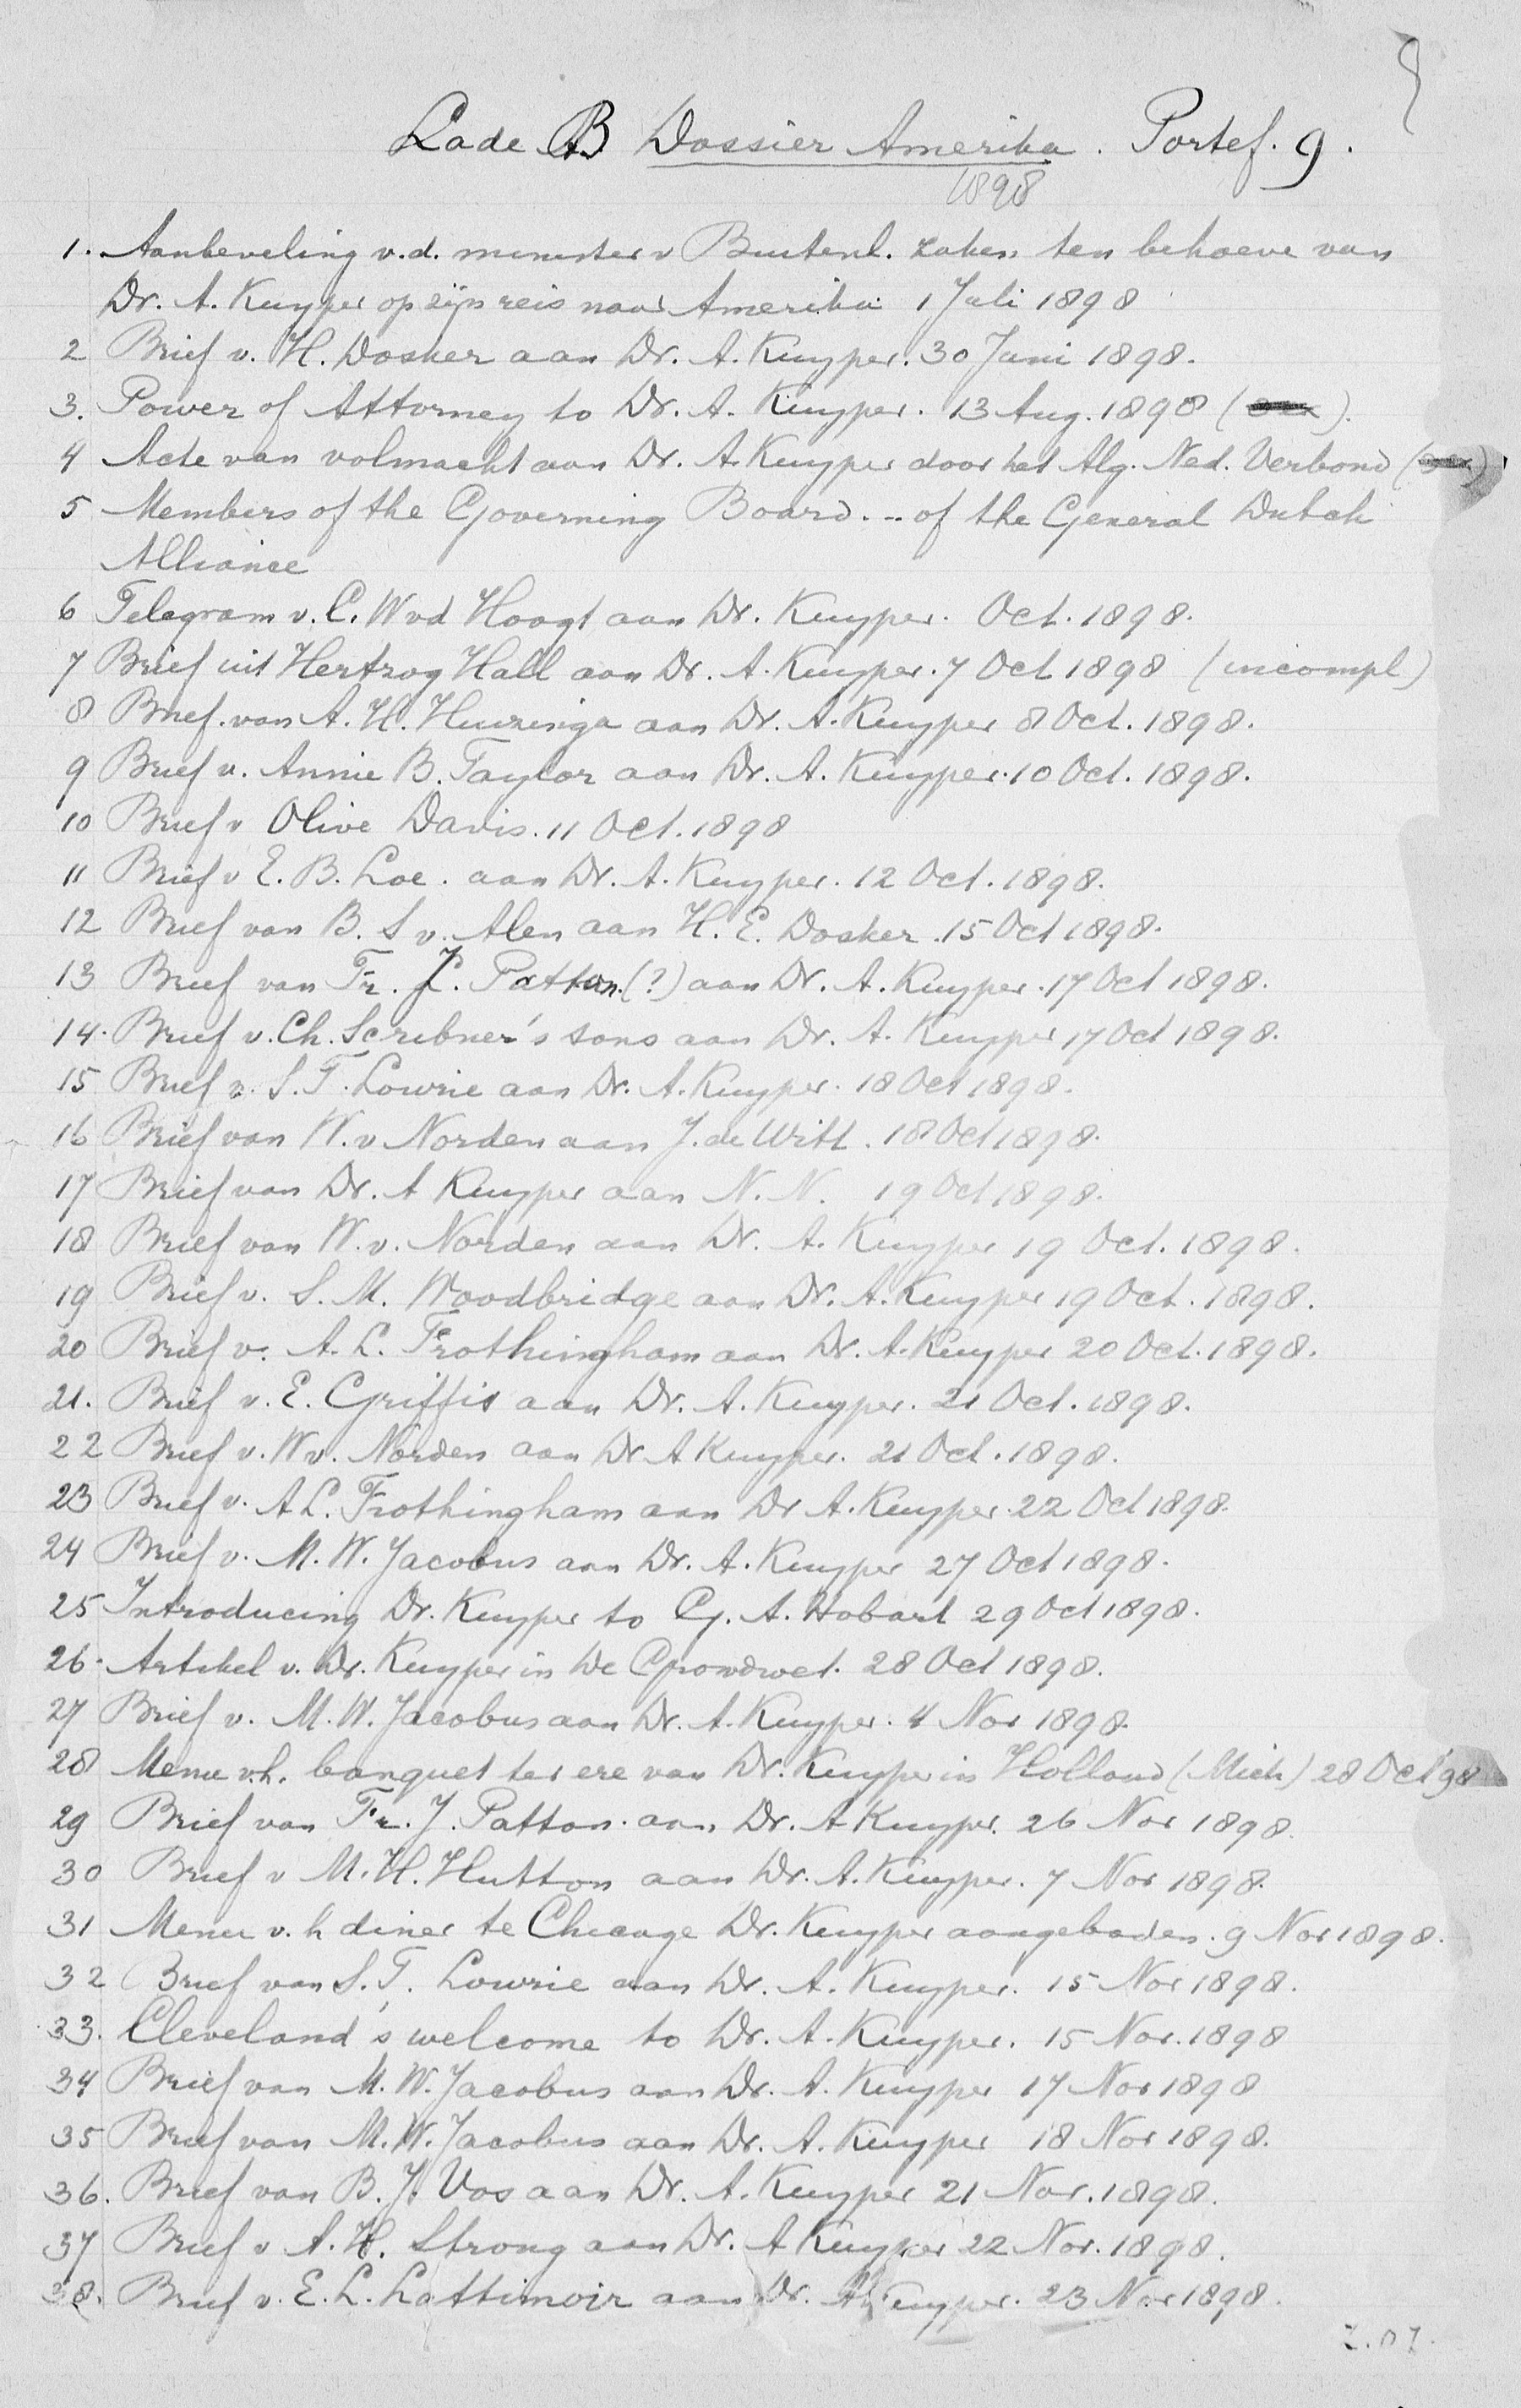 Lade B Dossier Amerika. Portef. 9.
1898
1. Aanbeveling v.d. minister v Buitenl. zaken ten behoeve van
Dr. A. Kuyper op zijn reis naar Amerika 1 Juli 1898
2 Brief v. H. Dosker aan Dr. A. Kuyper. 30 Juni 1898.
3. Power of Attorney to Dr. A. Kuyper. 13 Aug. 1898 ( ).
4 Acte van volmacht aan Dr. A. Kuyper door het Alg. Ned. Verbond ( )
5 Members of the Governing Board... of the General Dutch
Alliance
6 Telegram v. C. W vd Hoogt aan Dr. Kuyper. Oct. 1898.
7 Brief uit Hertzog Hall aan Dr. A. Kuyper. 7 Oct 1898 (incompl)
8 Brief. van A. H. Huizinga aan Dr. A. Kuyper 8 Oct. 1898.
9 Brief v. Annie B. Taylor aan Dr. A. Kuyper. 10 Oct. 1898.
10 Brief v Olive Davis. 11 Oct. 1898
11 Brief v E. B. Loe. aan Dr. A. Kuyper. 12 Oct. 1898.
12 Brief van B. S v. Alen aan H. E. Dosker. 15 Oct 1898.
13 Brief van Fr. J. Patton (?) aan Dr. A. Kuyper. 17 Oct 1898.
14. Brief v. Ch. Scribner's sons aan Dr. A. Kuyper 17 Oct 1898.
15 Brief v. S. T. Lowrie aan Dr. A. Kuyper. 18 Oct 1898.
16 Brief van W. v Norden aan J. de Witt. 18 Oct 1898.
17 Brief van Dr. A Kuyper aan N. N. 19 Oct 1898.
18 Brief van W. v. Norden aan Dr. A. Kuyper 19 Oct. 1898.
19 Brief v. S. M. Woodbridge aan Dr. A. Kuyper 19 Oct. 1898.
20 Brief v. A. L. Frothingham aan Dr. A. Kuyper 20 Oct. 1898.
21. Brief v. E. Griffis aan Dr. A. Kuyper. 21 Oct. 1898.
22 Brief v. W v. Norden aan Dr A Kuyper. 21 Oct. 1898.
23 Brief v. A L. Frothingham aan Dr A. Kuyper. 22 Oct 1898.
24 Brief v. M. W. Jacobus aan Dr. A. Kuyper 27 Oct 1898.
25 Introducing Dr. Kuyper to G. A. Hobart 29 Oct 1898.
26. Artikel v. Dr. Kuyper in De Grondwet. 28 Oct 1898.
27 Brief v. M. W. Jacobus aan Dr. A. Kuyper. 4 Nov 1898.
28 Menu v.h. banquet ter ere van Dr. Kuyper in Holland (Mich) 28 Oct '98
29 Brief van Fr. J. Patton. aan Dr. A Kuyper. 26 Nov 1898.
30 Brief v M. H. Hutton aan Dr. A. Kuyper. 7 Nov 1898.
31 Menu v. h diner te Chicago Dr. Kuyper aangeboden. 9 Nov 1898.
32 Brief van S. T. Lowrie aan Dr. A. Kuyper. 15 Nov 1898.
33. Cleveland's welcome to Dr. A. Kuyper. 15 Nov. 1898
34 Brief van M. W. Jacobus aan Dr. A. Kuyper 17 Nov 1898
35 Brief van M. W. Jacobus aan Dr. A. Kuyper 18 Nov 1898.
36. Brief van B. J. Vos aan Dr. A. Kuyper 21 Nov. 1898.
37 Brief v A. H. Strong aan Dr. A Kuyper 22 Nov. 1898.
38. Brief v. E. L. Lattimoir aan Dr. A Kuyper. 23 Nov 1898.
Z.O.Z.